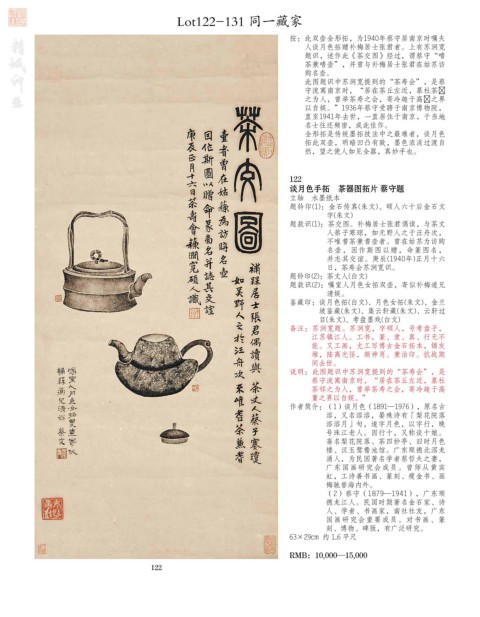 Lot122-131 同一藏家
精诚所至
按：此双壶全形拓，为1940年蔡守居南京时嘱夫
人谈月色拓赠补梅居士张君者。上有苏涧宽
题识，述作此《茶交图》经过，谓蔡守“嗜
茶兼嗜壶”，并曾与补梅居士张君在姑苏访
购名壶。
此图题识中苏涧宽提到的“茶寿会”，是蔡
守流寓南京时，“居在茶丘左近，慕杜茶
之为人，曾举茶寿之会，寄冷趣于高之界
以自娱。”1936年蔡守受聘于南京博物院，
直至1941年去世，一直居住于南京，于当地
名士往还频密，成此佳作。
全形拓是传统墨拓技法中之最难者，谈月色
拓此双壶，明暗凹凸有致，墨色浓淡过渡自
然，望之使人如见全器，真妙手也。
122
谈月色手拓 茶器图拓片 蔡守题
立轴 水墨纸本
题铃印(1)：金石传真(朱文)、硕人六十后金石文
字(朱文)
题款识(1)：茶交图。补梅居士张君偶读，与茶丈
人蔡子寒琼，如光野人之于汪舟次，
不唯嗜茶兼耆壶者。曾在姑苏为访购
名壶，因作斯图以赠，命篆图名，
并志其交谊。庚辰(1940年)正月十六
日，茶寿会苏涧宽识。
题铃印(2)：茶丈人(白文)
题款识(2)：嘱室人月色女拓双壶，寄似补梅道兄
清概。
鉴藏印：谈月色拓(白文)、月色女拓(朱文)、金兰
坡鉴藏(朱文)、集云轩藏(朱文)、云轩过
目(朱文)、考盘墨戏(白文)
备注：苏涧宽题。苏涧宽，字硕人，号考盘子，
江苏镇江人。工书，篆、隶、真、行无不
能。又工画，尤工写博古金石拓本，镇友
雄，陆高光怪，颇神肖。兼治印。抗战期
间去世。
说明：此图题识中苏涧宽提到的“茶寿会”，是
蔡守流寓南京时，“居在茶丘左近，慕杜
茶邨之为人，曾举茶寿之会，寄冷趣于高
董之界以自娱。”
作者简介：（1）谈月色（1891—1976），原名古
溶，又名溶溶，晏殊诗有「梨花院落
溶溶月」句，遂字月色，以字行，晚
号珠江老人。因行十，又称谈十娘。
斋名梨花院落、茶四妙亭、旧时月色
楼、汉玉鸳鸯池馆。广东顺德北滘龙
涌人，为民国著名学者蔡哲夫之妻，
广东国画研究会成员。曾师从黄宾
虹，工诗善书画、篆刻、瘦金书、画
梅驰誉海内外。
（2）蔡守（1879—1941），广东顺
德龙江人。民国时期著名金石家、诗
人、学者、书画家，南社社友，广东
国画研究会重要成员。对书画、篆
刻、博物、碑版，有广泛研究。
63×29cm 约 1.6 平尺
RMB: 10,000—15,000
茶交图
補梅居士張君偶讀與 茶丈人蔡子寒瓊
如吴野人之於汪舟次 不唯嗜茶兼耆
壷者曾在姑蘇為訪購名壺
因作斯圖以贈命篆圖名并誌其交誼
庚辰正月十六日茶壽會蘇澗寬碩人識
122